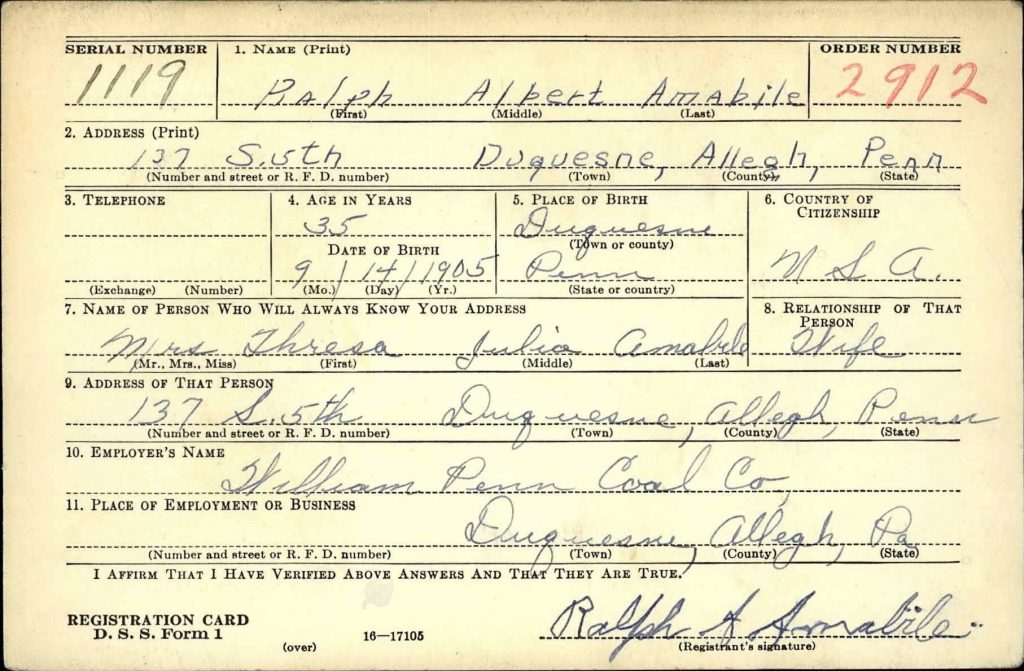 SERIAL NUMBER 1. NAME (Print) ORDER NUMBER
1119 Ralph Albert Amabile 2912
(First) (Middle) (Last)
2. ADDRESS (Print)
137 S. 5th Duquesne, Allegh, Penn
(Number and street or R. F. D. number) (Town) (County) (State)
3. TELEPHONE 4. AGE IN YEARS 5. PLACE OF BIRTH 6. COUNTRY OF CITIZENSHIP
35 Duquesne
DATE OF BIRTH (Town or county)
9 / 14 / 1905 Penn U S A.
(Exchange) (Number) (Mo.) (Day) (Yr.) (State or country)
7. NAME OF PERSON WHO WILL ALWAYS KNOW YOUR ADDRESS 8. RELATIONSHIP OF THAT PERSON
Mrs Thresa Julia Amabile Wife
(Mr., Mrs., Miss) (First) (Middle) (Last)
9. ADDRESS OF THAT PERSON
137 S. 5th Duquesne, Allegh, Penn
(Number and street or R. F. D. number) (Town) (County) (State)
10. EMPLOYER'S NAME
William Penn Coal Co,
11. PLACE OF EMPLOYMENT OR BUSINESS
Duquesne, Allegh, Pa
(Number and street or R. F. D. number) (Town) (County) (State)
I AFFIRM THAT I HAVE VERIFIED ABOVE ANSWERS AND THAT THEY ARE TRUE.
REGISTRATION CARD
D. S. S. Form 1 16—17105 Ralph A Amabile
(over) (Registrant's signature)